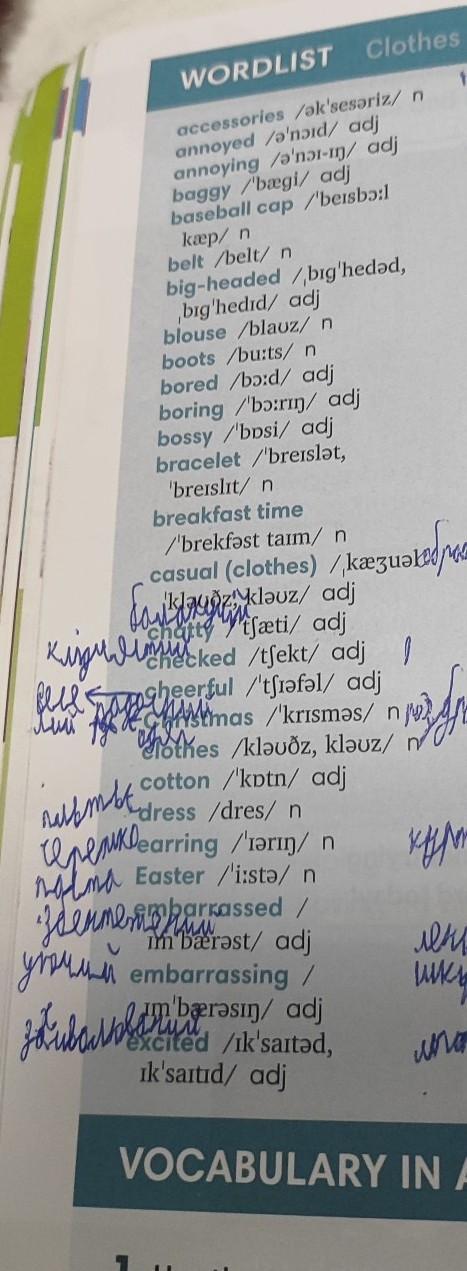 WORDLIST Clothes
accessories /əkˈsesəriz/ n
annoyed /əˈnɔɪd/ adj
annoying /əˈnɔɪ-ɪŋ/ adj
baggy /ˈbæɡi/ adj
baseball cap /ˈbeɪsbɔːl
kæp/ n
belt /belt/ n
big-headed /ˌbɪɡˈhedəd,
ˌbɪɡˈhedɪd/ adj
blouse /blaʊz/ n
boots /buːts/ n
bored /bɔːd/ adj
boring /ˈbɔːrɪŋ/ adj
bossy /ˈbɒsi/ adj
bracelet /ˈbreɪslət,
ˈbreɪslɪt/ n
breakfast time
/ˈbrekfəst taɪm/ n
casual (clothes) /ˌkæʒuəl
ˈkləʊðz, kləʊz/ adj
chatty /ˈtʃæti/ adj
checked /tʃekt/ adj
cheerful /ˈtʃɪəfəl/ adj
Christmas /ˈkrɪsməs/ n
одяг
clothes /kləʊðz, kləʊz/ n
cotton /ˈkɒtn/ adj
плаття
dress /dres/ n
сережка
earring /ˈɪərɪŋ/ n
Easter /ˈiːstə/ n
embarrassed /
ɪmˈbærəst/ adj
embarrassing /
ɪmˈbærəsɪŋ/ adj
excited /ɪkˈsaɪtəd,
ɪkˈsaɪtɪd/ adj
VOCABULARY IN
1